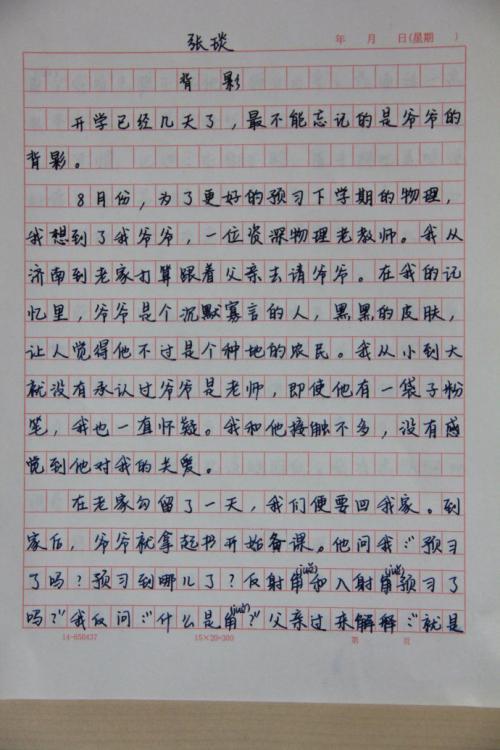 张琰
年 月 日(星期 )
背影
开学已经几天了，最不能忘记的是爷爷的
背影。
8月份，为了更好的预习下学期的物理，
我想到了我爷爷，一位资深物理老教师。我从
济南到老家打算跟着父亲去请爷爷。在我的记
忆里，爷爷是个沉默寡言的人，黑黑的皮肤，
让人觉得他不过是个种地的农民。我从小到大
就没有承认过爷爷是老师，即使他有一袋子粉
笔，我也一直怀疑。我和他接触不多，没有感
觉到他对我的关爱。
在老家勾留了一天，我们便要回我家。到
家后，爷爷就拿起书开始备课。他问我：“预习
了吗？预习到哪儿了？反射角(jiǎ)和入射角(jiǎ)预习了
吗？”我反问：“什么是角(jiǎ)？”父亲过来解释：“就是
14-650437 15×20=300 第 页